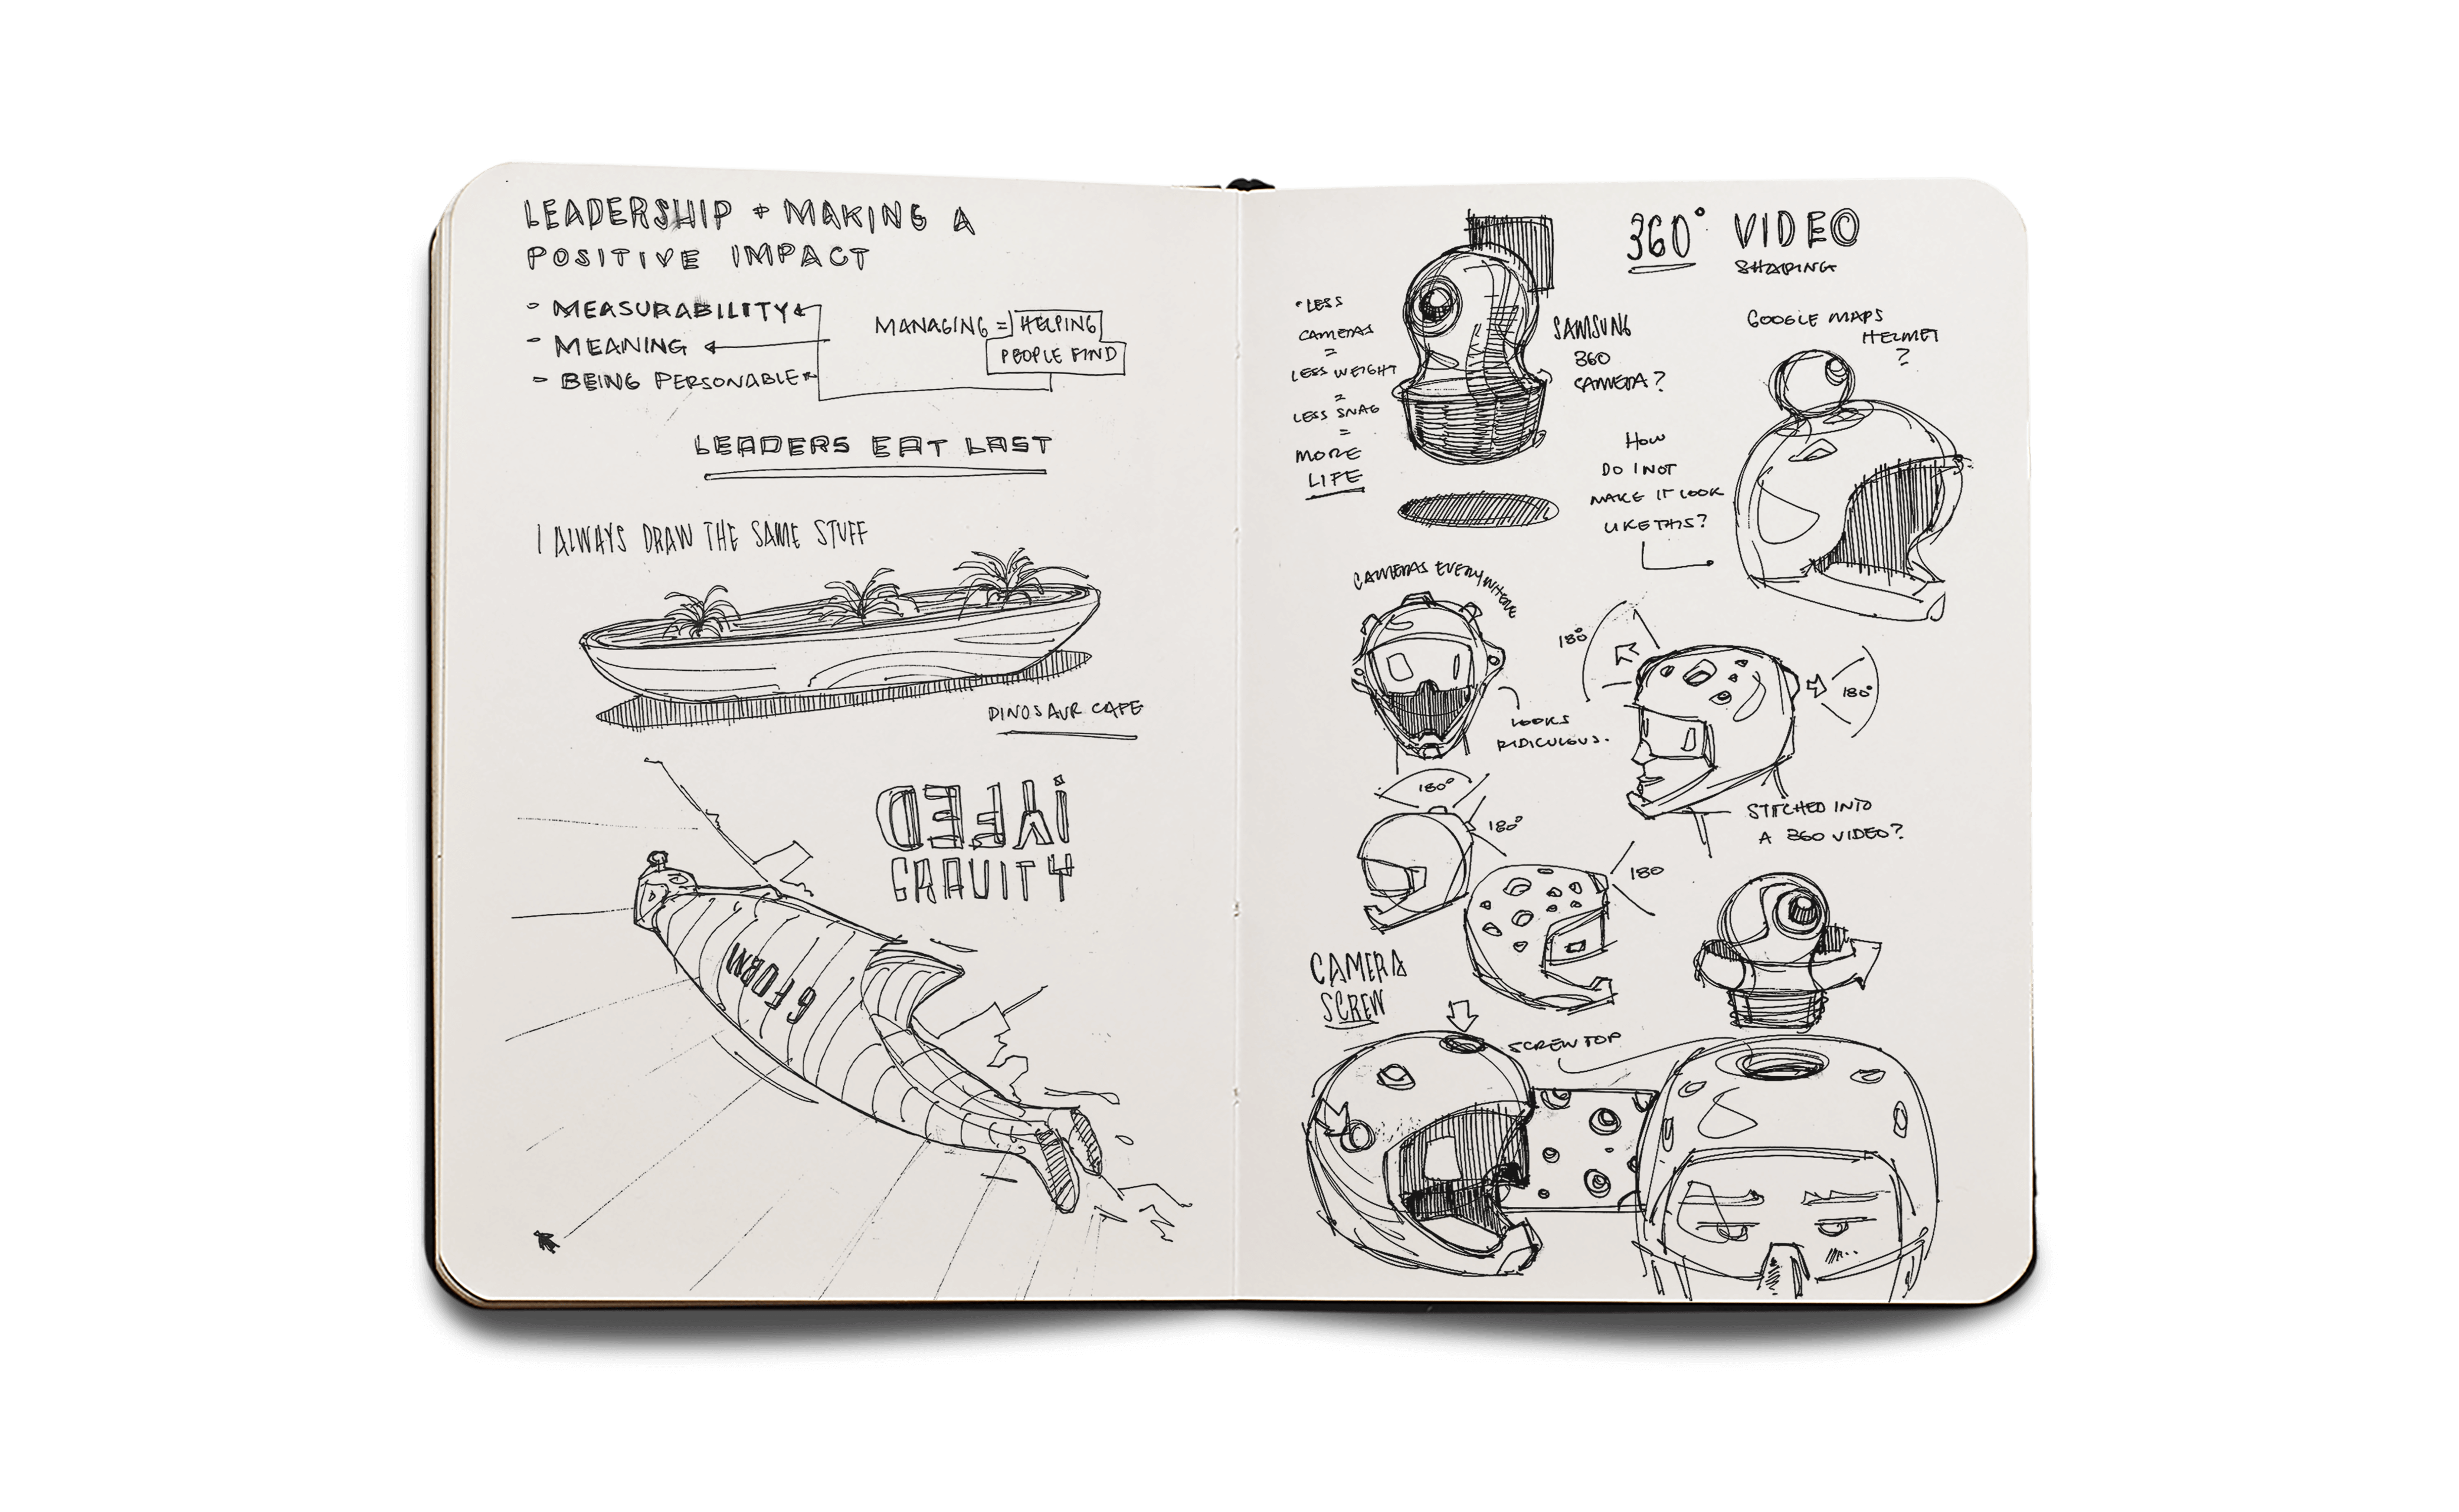 LEADERSHIP + MAKING A
POSITIVE IMPACT
- MEASURABILITY
- MEANING
- BEING PERSONABLE
MANAGING = HELPING
PEOPLE FIND
LEADERS EAT LAST
I ALWAYS DRAW THE SAME STUFF
DINOSAUR CAFE
DEFYi
GRAVITY
6 FORM
360° VIDEO
SHARING
• LESS
CAMERAS
=
LESS WEIGHT
=
LESS SNAG
=
MORE
LIFE
SAMSUNG
360
CAMERA?
GOOGLE MAPS
HELMET
?
HOW
DO I NOT
MAKE IT LOOK
LIKE THIS?
CAMERAS EVERYWHERE
LOOKS
RIDICULOUS.
180°
180°
STITCHED INTO
A 360 VIDEO?
180°
180°
180
CAMERA
SCREW
SCREW TOP